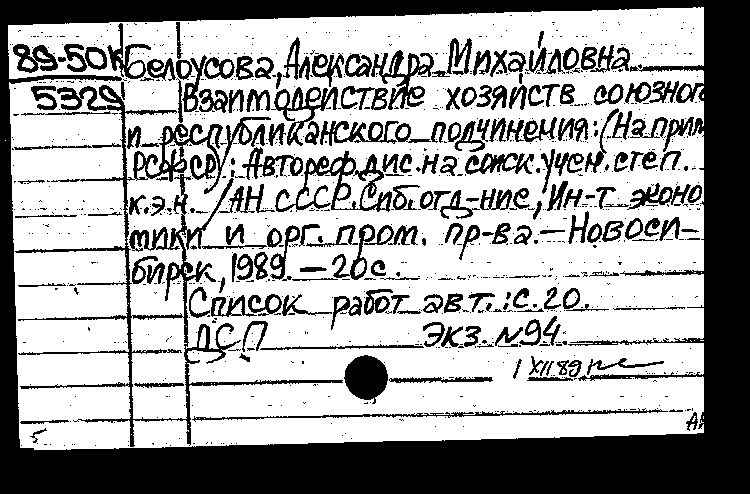 89-50к Белоусова, Александра Михайловна.
5329 Взаимодействие хозяйств союзного
и республиканского подчинения: (На прим
РСФСР): Автореф. дис. на соиск. учен. степ.
к.э.н. / АН СССР. Сиб. отд-ние, Ин-т эконо
мики и орг. пром. пр-ва. — Новоси-
бирск, 1989. — 20с.
Список работ авт.: с. 20.
ДСП Экз. N94.
1 XII 89
5